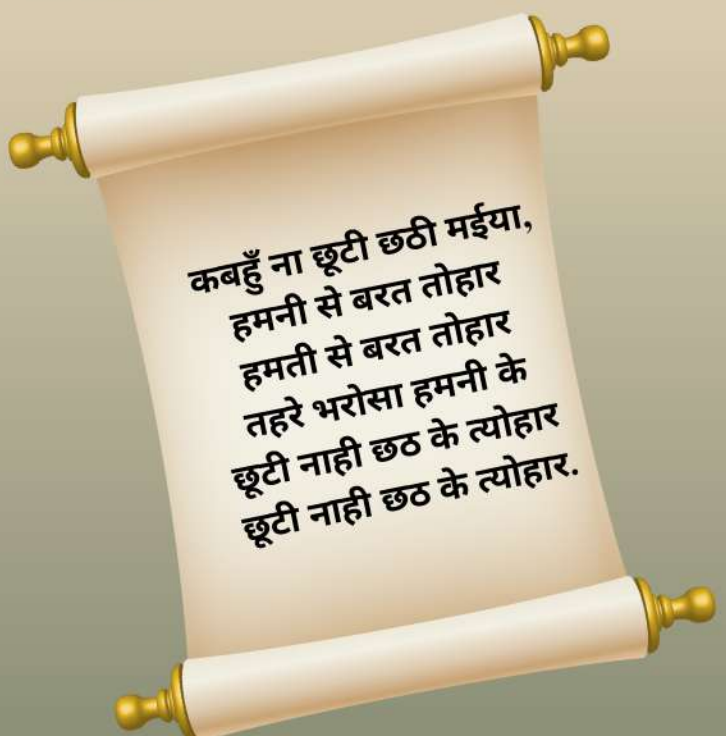 कबहुँ ना छूटी छठी मईया,
हमनी से बरत तोहार
हमती से बरत तोहार
तहरे भरोसा हमनी के
छूटी नाही छठ के त्योहार
छूटी नाही छठ के त्योहार.